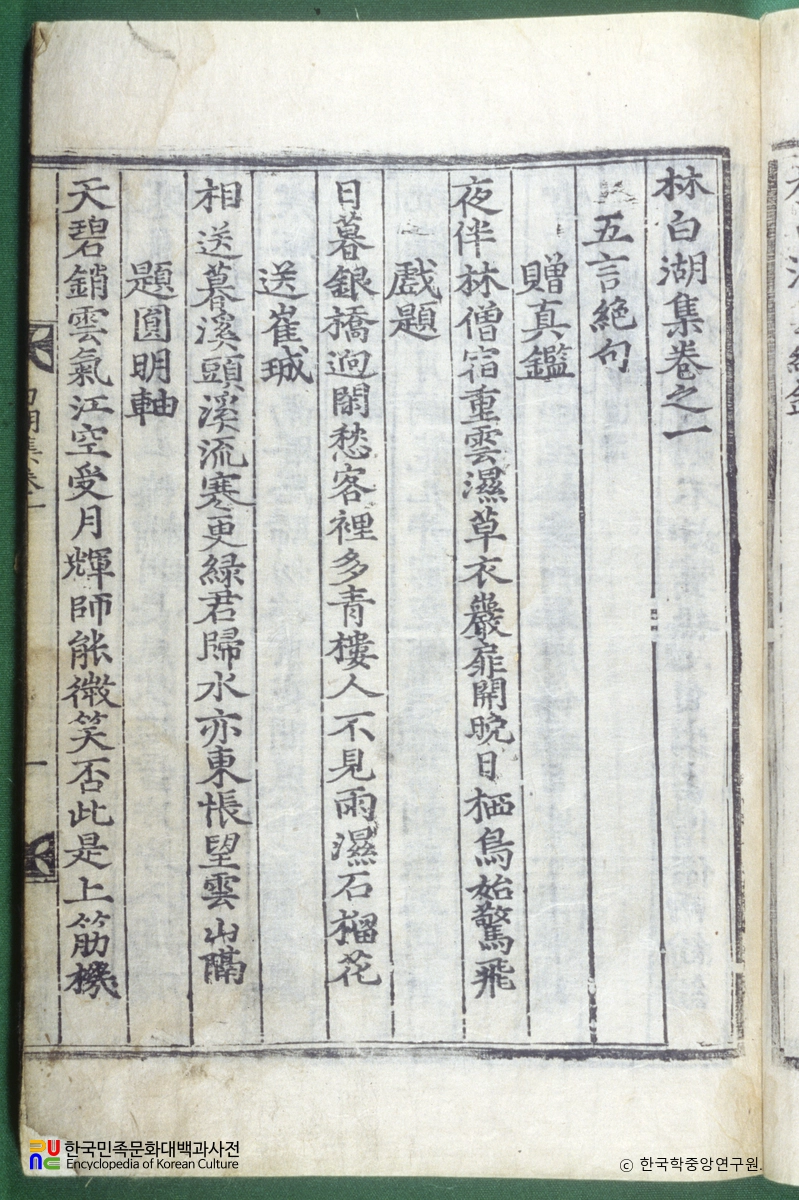 林白湖集卷之一
五言絶句
贈真鑑
夜伴林僧宿重雲濕草衣巖扉開晩日栖鳥始驚飛
戲題
日暮銀橋逈閑愁客裡多青樓人不見雨濕石榴花
送崔珹
相送暮溪頭溪流寒更緑君歸水亦東悵望雲山隔
題圓明軸
天碧銷雲氣江空受月輝師能微笑否此是上筋機
白湖集卷一
一
한국민족문화대백과사전
Encyclopedia of Korean Culture
© 한국학중앙연구원.